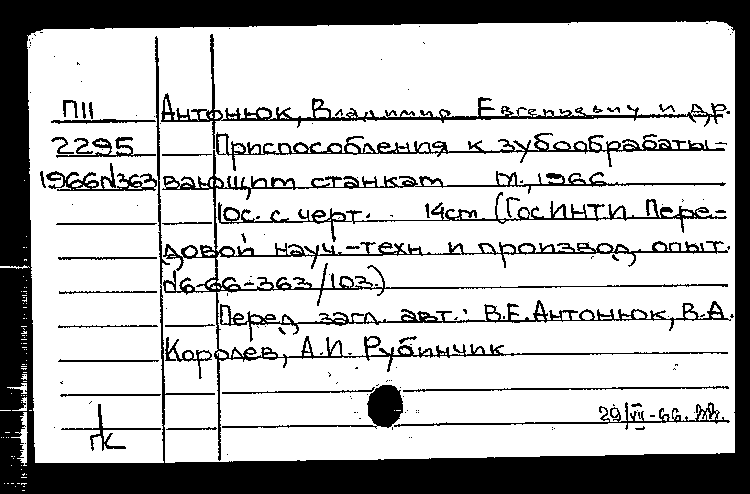 П11 Антонюк, Владимир Евгеньевич и др.
2295 Приспособления к зубообрабаты-
1966 №363 вающим станкам М., 1966
10с. с черт. 14см (ГосИНТИ. Пере-
довой науч.-техн. и производ. опыт.
№6-66-363/103.)
Перед загл. авт.: В.Е.Антонюк, В.А.
Королёв, А.И. Рубинчик
29/VII-66.
ГК